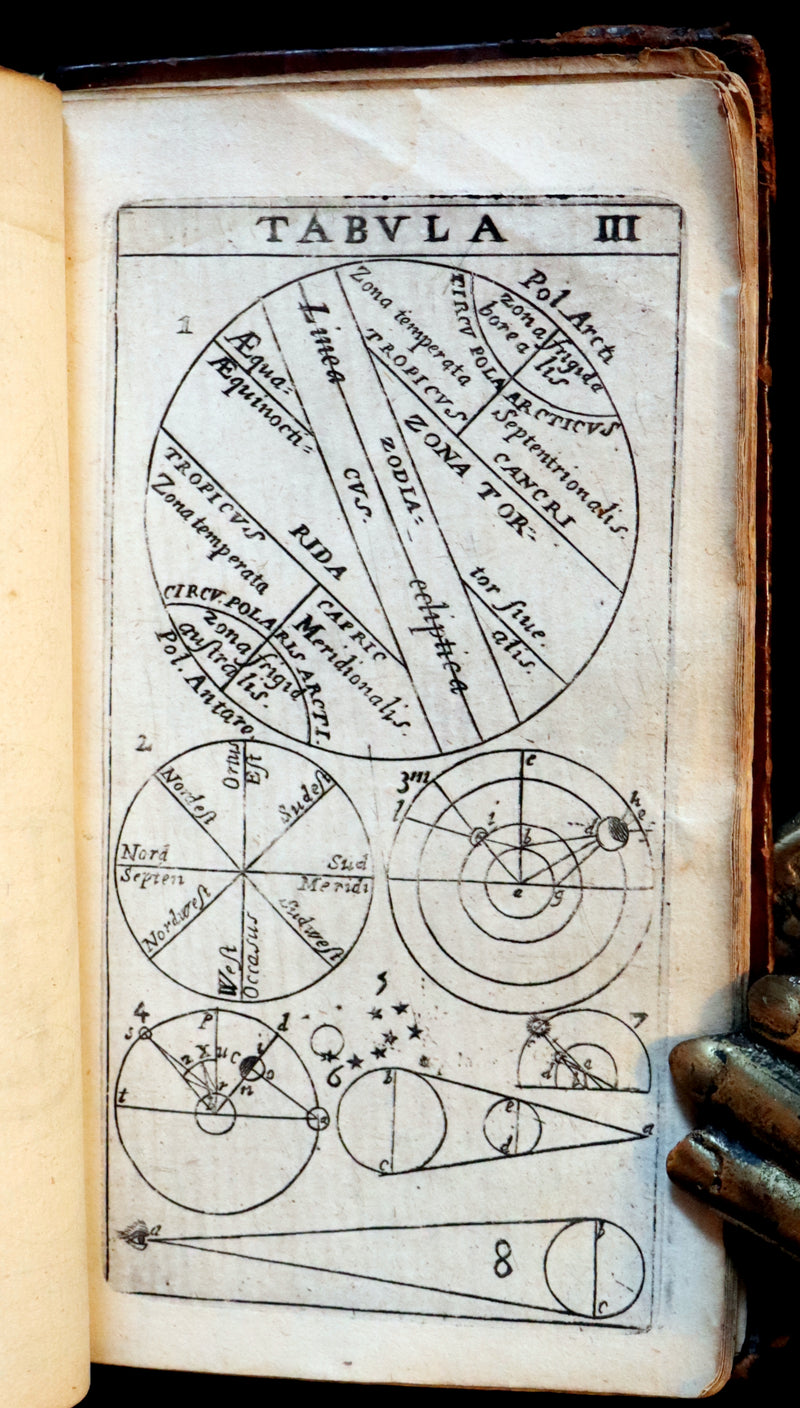 TABVLA III
1
Pol Arcti
Zona temperata
CIRCV POLA ARCTICVS
zona frigida
borea lis
TROPICVS
CANCRI
Septentrionalis.
Linea
Æqua=
Æquinocti=
ZONA TOR=
ZODIA=
CVS.
TROPICVS
RIDA
Zona temperata
tor ſiue.
alis.
ecliptica
CAPRIC
Meridionalis.
CIRCV. POLA RIS ARCTI.
zona frigid
auſtra lis.
Pol. Antarc.
2
Ortus
Eſt
Nordeſt
Sudeſt
Nord
Septen
Sud
Meridi
Nordweſt
Sudweſt
Weſt
Occasus
3
m
e
l
i
b
d
h
a
g
4
s
p
d
i
z
x
u
c
o
n
r
t
a
5
6
b
e
d
c
a
7
d
8
a
b
c